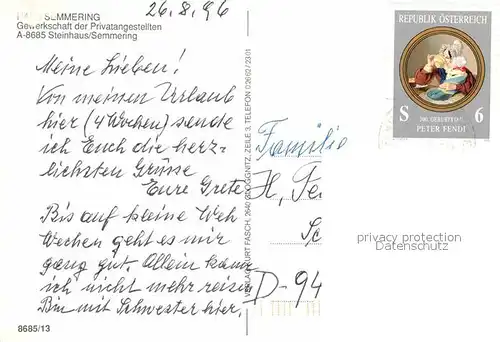 26.8.96
SEMMERING
Gewerkschaft der Privatangestellten
A-8685 Steinhaus/Semmering
Meine Lieben!
Von meinen Urlaub
hier (4 Wochen) sende
ich Euch die herz-
lichsten Grüsse
Eure Grete
Bis auf kleine Weh
Wochen geht es mir
ganz gut. Allein kann
ich nicht mehr reisen
Bin mit Schwester hier.
8685/13
VERLAG KURT FASCH, 2640 GLOGGNITZ, ZEILE 3, TELEFON 02662/2301
REPUBLIK ÖSTERREICH
S 6
200. GEBURTSTAG
PETER FENDI
Familie
H, Fe
Sc
D-94
privacy protection
Datenschutz